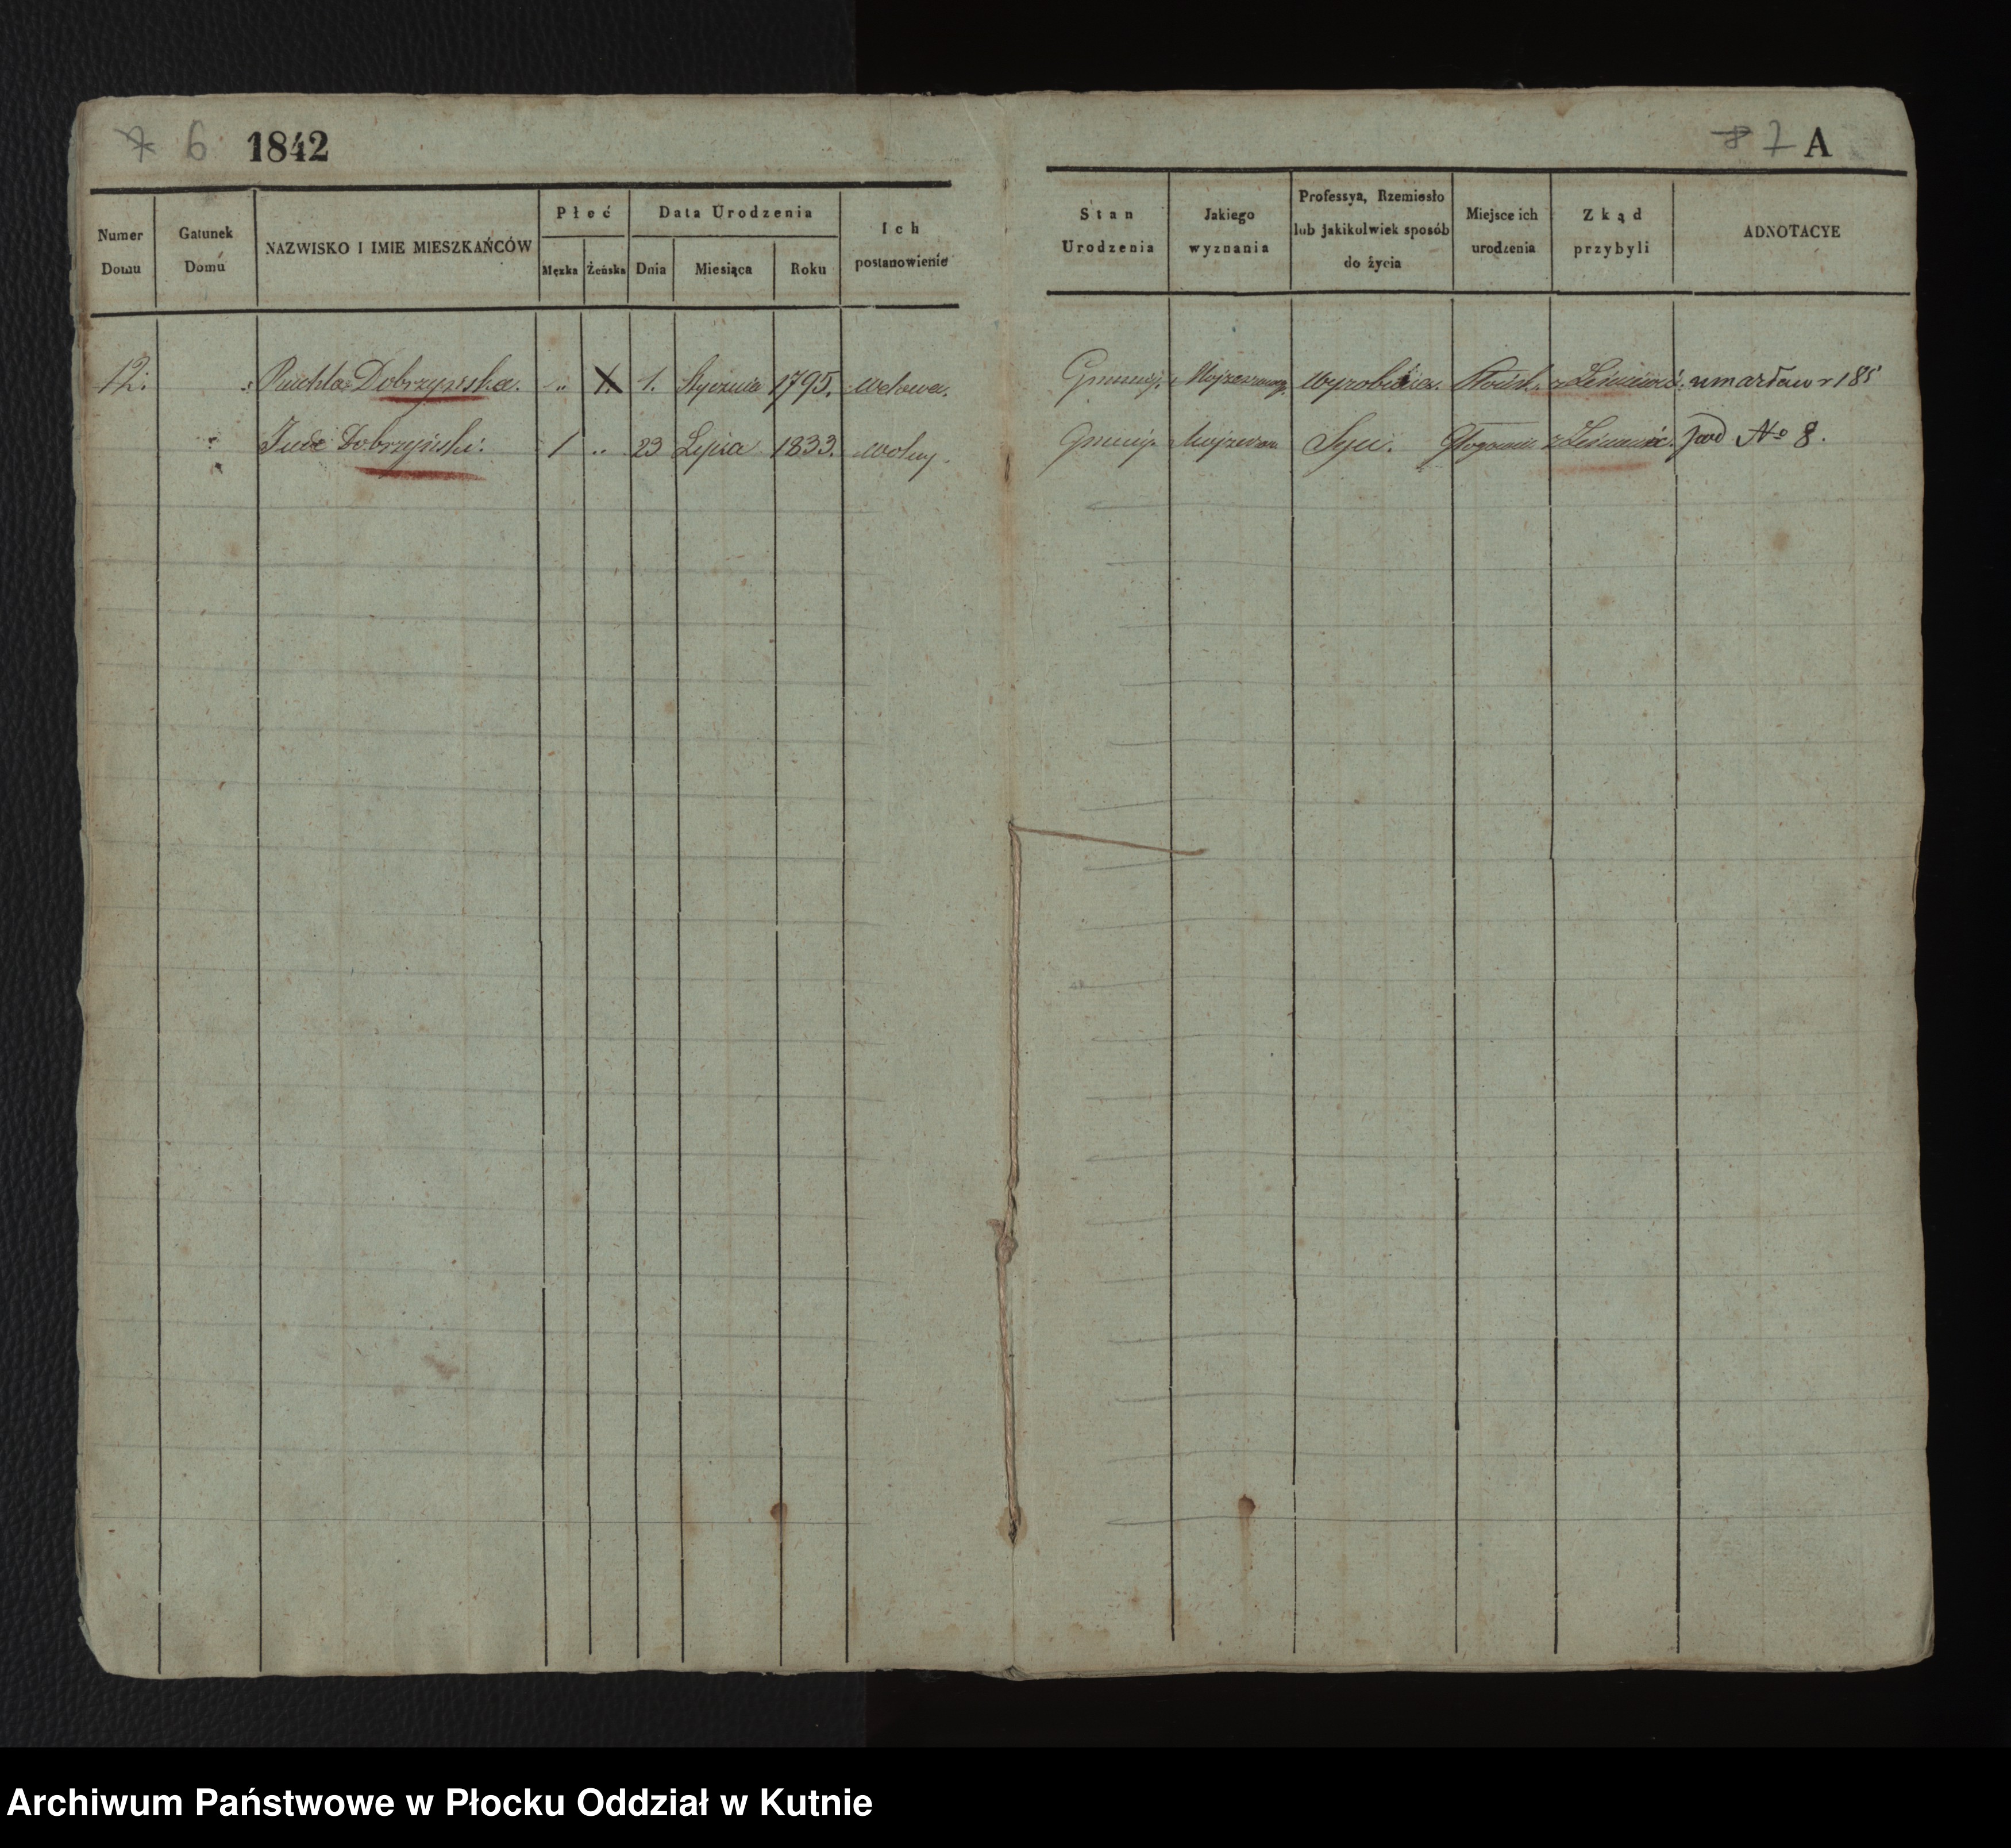 6 1842
7 A
Numer Domu
Gatunek Domu
NAZWISKO I IMIE MIESZKAŃCÓW
Płeć
Męzka Żeńska
Data Urodzenia
Dnia Miesiąca Roku
Ich postanowienie
Stan Urodzenia
Jakiego wyznania
Professya, Rzemiosło lub jakikolwiek sposób do życia
Miejsce ich urodzenia
Zkąd przybyli
ADNOTACYE
12. Ruchla Dobrzynska. " 1. 1. Stycznia 1795. wdowa. Gminnej. Wyrobnica. umarła w r 185
Jude Dobrzyński. 1 " 23 Lipca 1833. wolny. Gminnej. Syn. pod No 8.
Archiwum Państwowe w Płocku Oddział w Kutnie